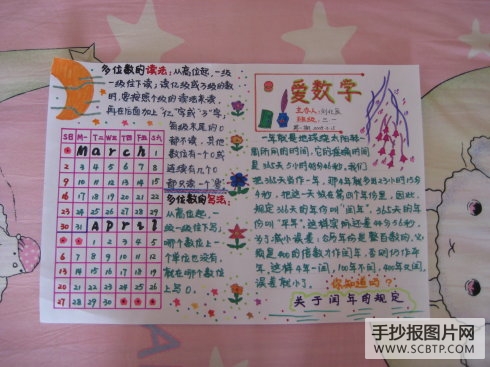 多位数的读法:从高位起,一级
一级往下读;读亿级或万级的数
时,要按照个级的读法来读,
再在后面加上"亿"字或"万"字。
每级末尾的0
都不读,其他
数位有一个0或
连续有几个0
都只读一个"零"
多位数的写法:
从高位起,一
级一级往下写;
哪个数位上一
个单位也没有,
就在哪个数位
上写0。
March 1
2 3 4 5 6 7 8
9 10 11 12 13 14 15
16 17 18 19 20 21 22
23 24 25 26 27 28 29
30 31 April
6 7 8 9 10 11 12
13 14 15 16 17 18 19
20 21 22 23 24 25 26
27 28 29 30
愛数学
主办人:
班级:
一年就是地球绕太阳转一
周所用的时间,它的准确时间
是365天5小时48分46秒,我们
把365天当作一年,那4年就多出23小时15分
4秒。把这一天放在第四个年份里,因此,
规定366天的年份叫"闰年",365天的年
份叫"平年"。这样实际还差44分56秒。
为了减小误差:公历年份是整百数的,必
须是400的倍数才作闰年,否则仍作平
年。这样4年一闰,100年不闰,400年又闰,
误差就小了。你知道吗?
关于闰年的规定
手抄报图片网
www.SCBTP.com